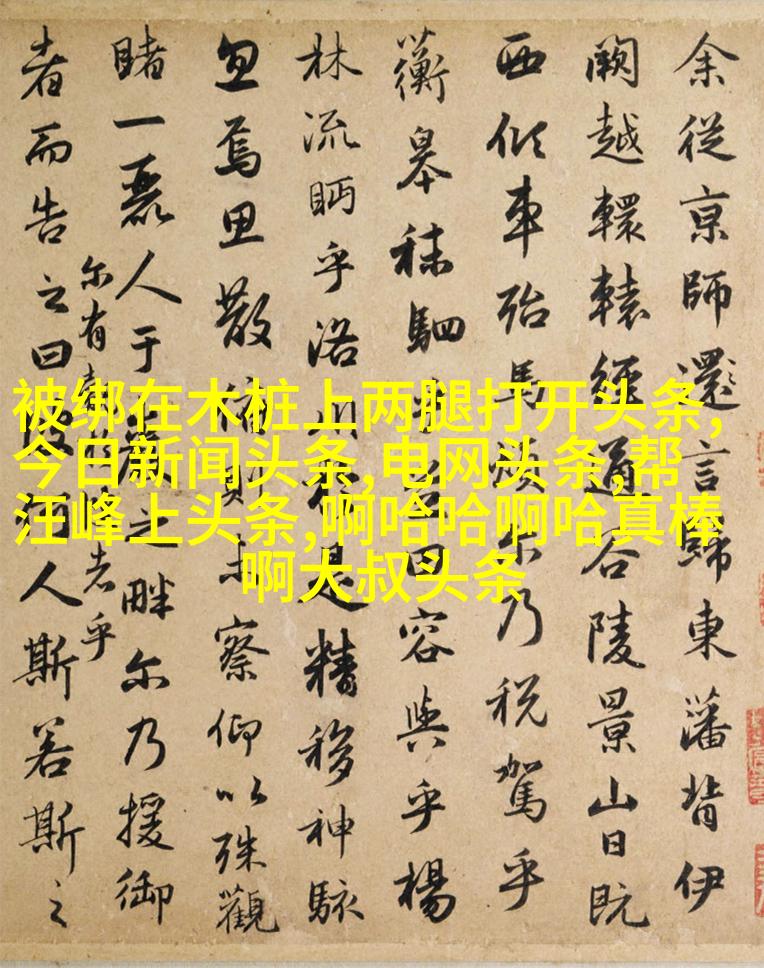 余從京師還言歸東藩背伊
闕越轘轅經通谷陵景山日既
西傾車殆馬煩尔乃税駕乎
蘅皋秣駟乎芝田容與乎楊
林流眄乎洛川於是精移神駭
忽焉思散俯則未察仰以殊觀
睹一麗人于巖之畔尔乃援御
者而告之曰彼何人斯若斯之
尔有覿於彼者乎
被绑在木桩上两腿打开头条,
今日新闻头条,电网头条,帮
汪峰上头条,啊哈哈啊哈真棒
啊大叔头条